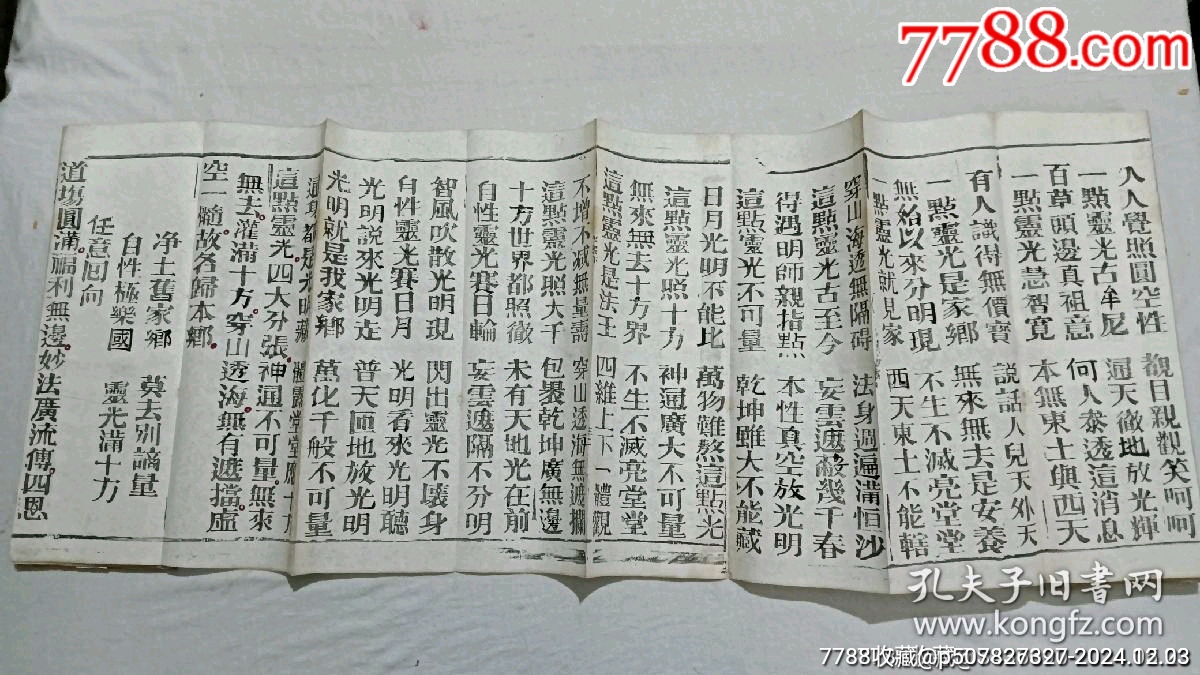 7788.com
人人覺照圓空性 觀目親觀笑呵呵
一點靈光古牟尼 通天徹地放光輝
百草頭邊真祖意 何人泰透這消息
一點靈光慧智寬 本無東土與西天
有人識得無價寶 説話人兒天外天
一點靈光是家鄉 無來無去是安養
無始以來分明現 不生不滅亮堂堂
一點靈光就見家 西天東土不能轄
穿山海透無隔碍 法身週遍滿恒沙
這點靈光古至今 妄雲遮蔽幾千春
得遇明師親指點 本性真空放光明
這點靈光不可量 乾坤雖大不能藏
日月光明不能比 萬物難熬這點光
這點靈光照十方 神通廣大不可量
無來無去十方界 不生不滅亮堂堂
這點靈光是法王 四維上下一體觀
不增不减無量壽 穿山透海無遮攔
這點靈光照大千 包褁乾坤廣無邊
十方世界都照徹 未有天地光在前
自性靈光賽日輪 妄雲遮隔不分明
智風吹散光明現 閃出靈光不壞身
自性靈光賽日月 光明看來光明聽
光明說來光明走 普天匝地放光明
光明就是我家鄉 萬化千般不可量
通身都是光明藏
這點靈光四大分張神通不可量無來
無去灌滿十方穿山透海無有遮擋虛
空一髓故名歸本鄉
净土舊家鄉 莫去別謫量
自性極樂國 靈光滿十方
任意回向
道塲圓滿福利無邊妙法廣流傳四恩
孔夫子旧书网
www.kongfz.com
7788收藏@p507827327-2024.12.03